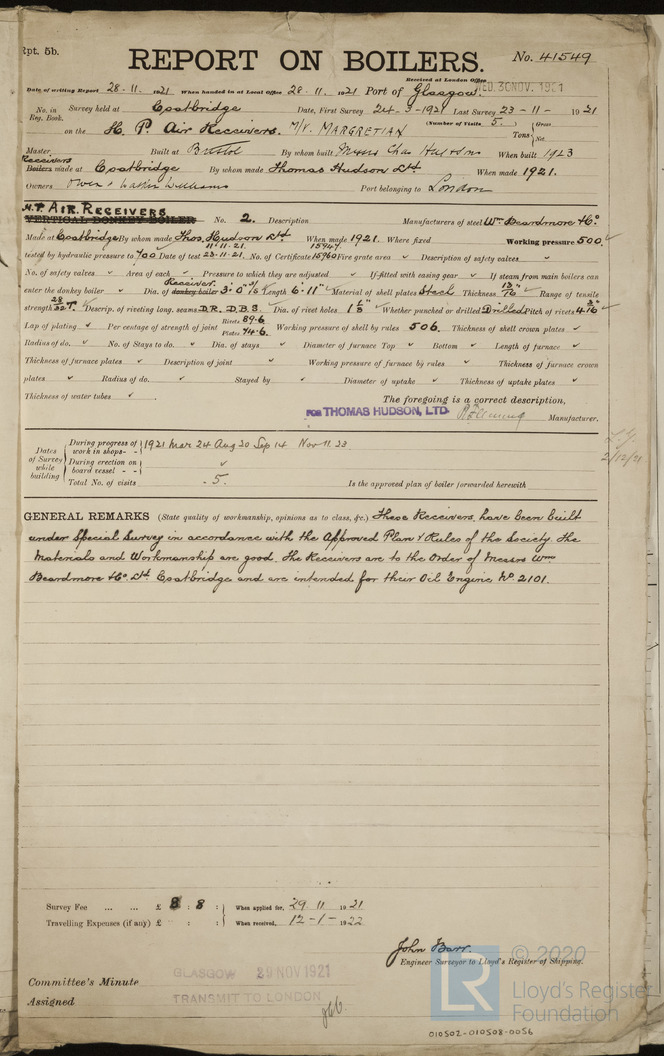 Rpt. 5b.
REPORT ON BOILERS.
No. 41549
Received at London Office
WED. 30 NOV. 1921
Date of writing Report 28.11.1921 When handed in at Local Office 28.11.1921 Port of Glasgow.
No. in Reg. Book. Survey held at Coatbridge Date, First Survey 24-3-1921 Last Survey 23-11-1921
(Number of Visits 5.)
on the H. P. Air Receivers. M/V. MARGRETIAN Tons { Gross Net
Master Built at Bristol By whom built Messrs Chas Hill & Sons When built 1923
Receivers
Boilers made at Coatbridge By whom made Thomas Hudson Ltd When made 1921.
Owners Owen & Watkin Williams Port belonging to London
H.P. AIR RECEIVERS
VERTICAL DONKEY BOILER No. 2. Description Manufacturers of steel Wm Beardmore & Co.
Made at Coatbridge By whom made Thos. Hudson Ltd When made 1921. Where fixed Working pressure 500
11.11.21. 15947
tested by hydraulic pressure to 700 Date of test 23.11.21. No. of Certificate 15960 Fire grate area Description of safety valves
No. of safety valves Area of each Pressure to which they are adjusted If fitted with easing gear If steam from main boilers can
Receiver.
enter the donkey boiler Dia. of donkey boiler 3'-0" Length 6'-11" Material of shell plates Steel Thickness 13/16" Range of tensile
strength 28/32 T. Descrip. of riveting long. seams D.R. D.B.S. Dia. of rivet holes 1 1/8" Whether punched or drilled Drilled Pitch of rivets 4 3/16"
Lap of plating Per centage of strength of joint Rivets 89.6 Plates 74.6 Working pressure of shell by rules 506. Thickness of shell crown plates
Radius of do. No. of Stays to do. Dia. of stays Diameter of furnace Top Bottom Length of furnace
Thickness of furnace plates Description of joint Working pressure of furnace by rules Thickness of furnace crown
plates Radius of do. Stayed by Diameter of uptake Thickness of uptake plates
Thickness of water tubes The foregoing is a correct description,
FOR THOMAS HUDSON, LTD. Manufacturer.
Dates of Survey while building
During progress of work in shops - - 1921 Mar 24 Aug 30 Sep 14 Nov 11. 23
During erection on board vessel - -
Total No. of visits 5. Is the approved plan of boiler forwarded herewith
2/12/21
GENERAL REMARKS (State quality of workmanship, opinions as to class, &c.) These Receivers have been built
under Special Survey in accordance with the Approved Plan & Rules of the Society. The
Materials and Workmanship are good. The Receivers are to the Order of Messrs Wm
Beardmore & Co. Ltd. Coatbridge and are intended for their Oil Engine No 2101.
Survey Fee ... ... £ 8 : 8 : When applied for, 29.11.1921
Travelling Expenses (if any) £ : : When received, 12-1-1922
John Barr.
Engineer Surveyor to Lloyd's Register of Shipping.
Committee's Minute GLASGOW 29 NOV 1921
Assigned TRANSMIT TO LONDON
© 2020
LR
Lloyd's Register
Foundation
010502-010508-0056